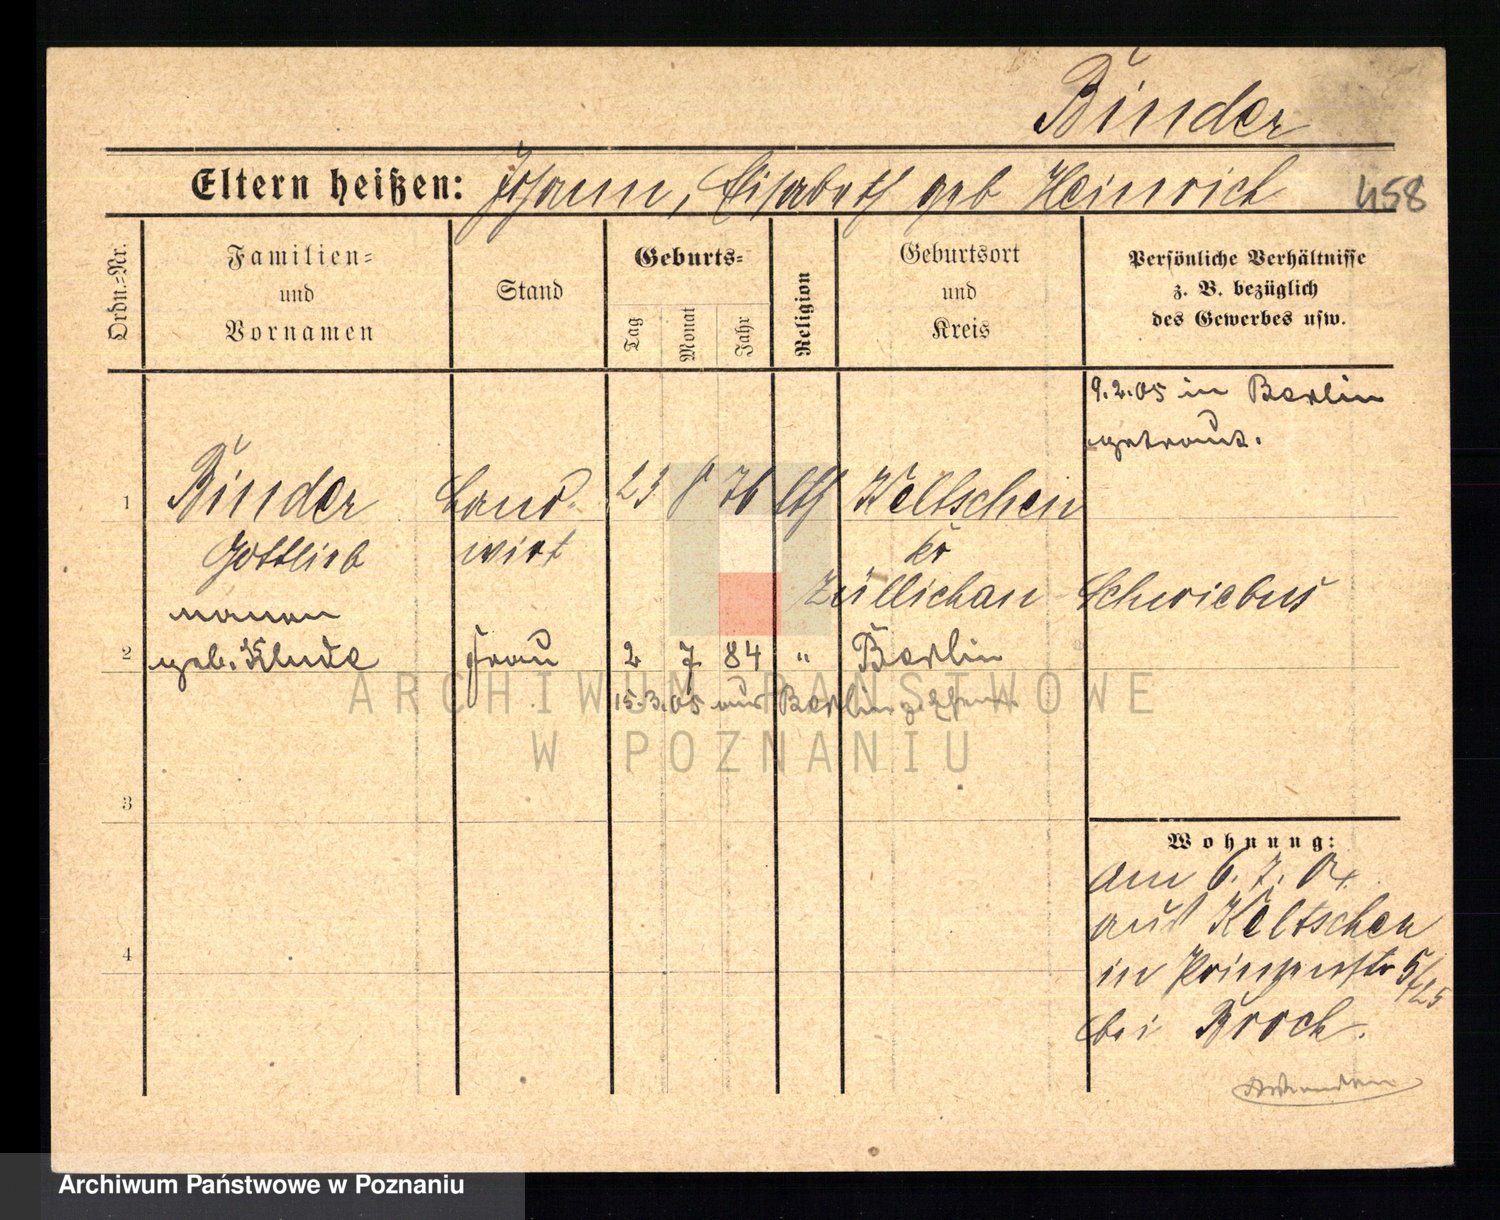 Binder
Eltern heißen: Johann, Elisabeth geb Heinrich
458
Ordn.=Nr.
Familien=
und
Vornamen
Stand
Geburts=
Tag
Monat
Jahr
Religion
Geburtsort
und
Kreis
Persönliche Verhältnisse
z. B. bezüglich
des Gewerbes usw.
9.2.05 in Berlin
getraut.
1 Binder Land- 23 8 76 lth Keltschen
Gottlieb wirt Kr
Züllichau Schwiebus
2 geb. Klude Frau 2 7 84 " Berlin
15.3.05 aus Berlin
3
4
Wohnung:
am 6.7.04.
aus Keltschen
in Prinzenstr 5/
bei Broch.
ARCHIWUM PAŃSTWOWE
W POZNANIU
Archiwum Państwowe w Poznaniu